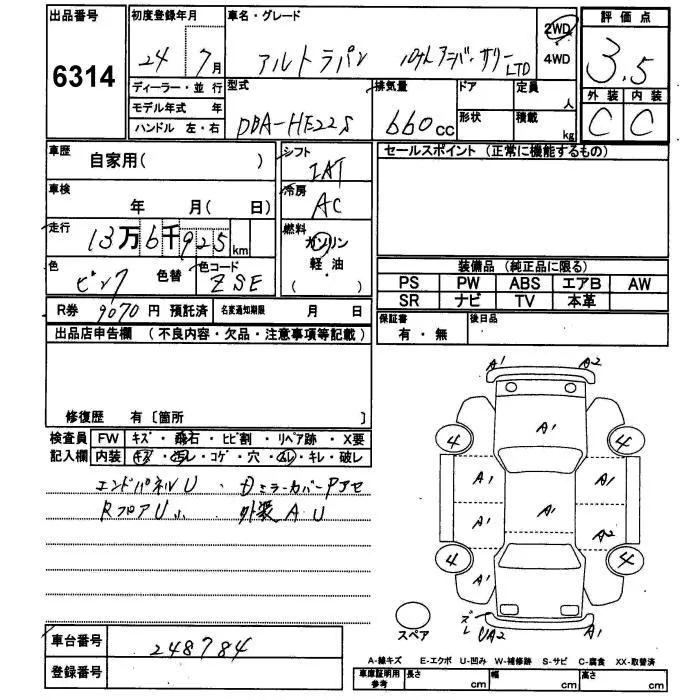 出品番号 初度登録年月 車名・グレード 評価点
6314 24年 7月 アルトラパン 10thアニバーサリーLTD 2WD 4WD 3.5
ディーラー・並行 型式 排気量 ドア 定員 人 外装 内装
モデル年式 年 DBA-HE22S 660cc C C
ハンドル 左・右 形状 積載 kg
車歴 自家用( ) シフト IAT セールスポイント (正常に機能するもの)
車検 年 月( 日) 冷房 AC
走行 13万6千925km 燃料 ガソリン
軽・油
( )
色 ピンク 色替 色コード ZSE 装備品 (純正品に限る)
PS PW ABS エアB AW
SR ナビ TV 本革
R券 9070 円 預託済 名変通知期限 月 日 保証書 有・無 後日品
出品店申告欄 (不良内容・欠品・注意事項等記載)
修復歴 有 [箇所 ]
検査員 FW キズ・飛石・ヒビ割・リペア跡・X要
記入欄 内装 キズ・汚れ・コゲ・穴・ムレ・キレ・破レ
エンドパネルU ・ カバーアセ
RフロアU小 外装 A U
A1 A2
A1
4 4
A1
A1 A1
A2
4 4
A1
ズレ UA2 A1
スペア
車台番号 248784
登録番号
A-線キズ E-エクボ U-凹み W-補修跡 S-サビ C-腐食 XX-取替済
車庫証明用参考 長さ cm 幅 cm 高さ cm